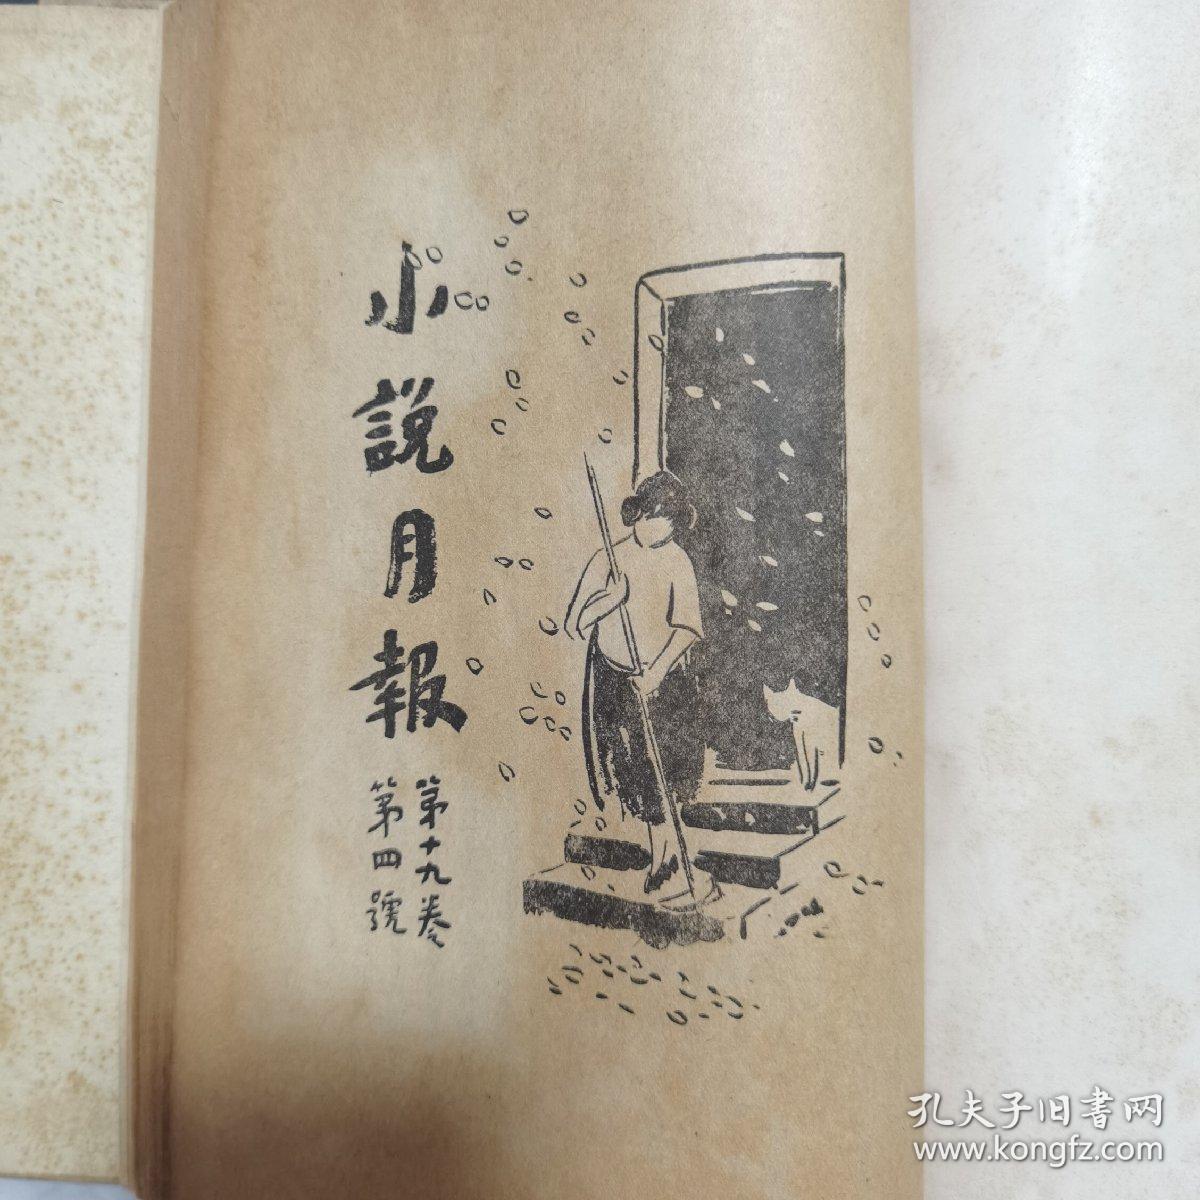 小說月報
第十九卷
第四號
孔夫子旧書网
www.kongfz.com